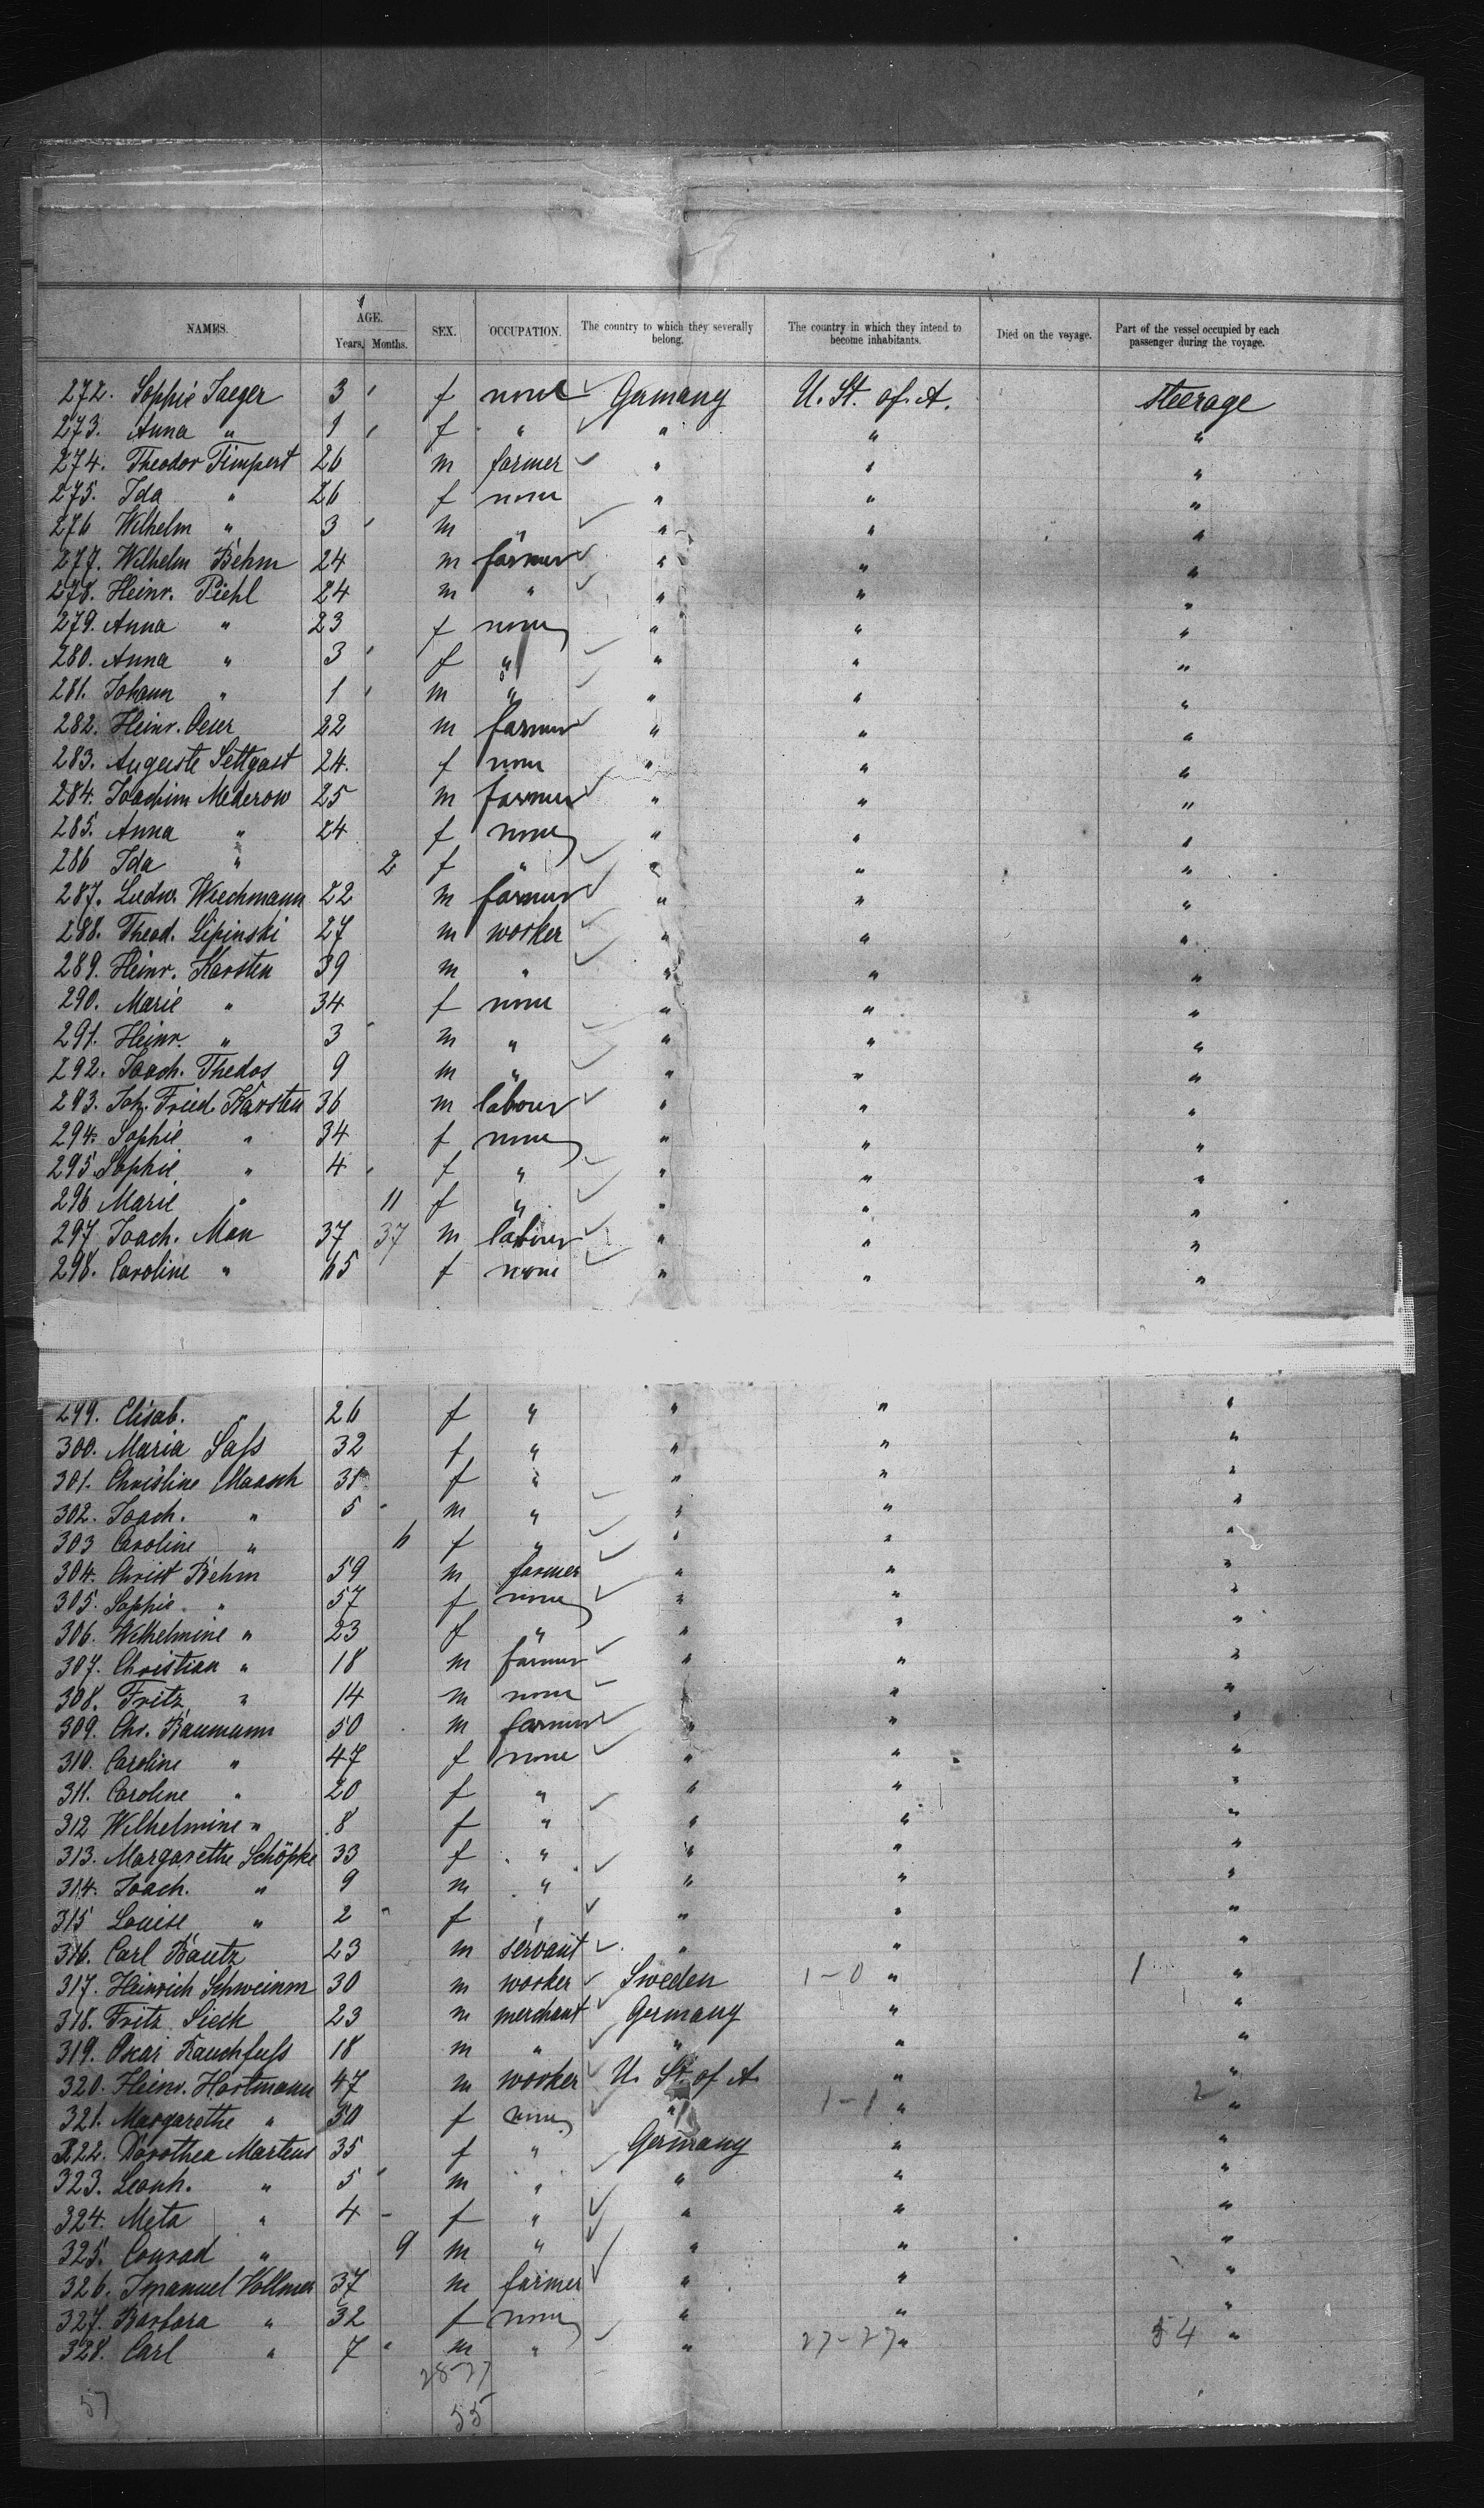 NAMES. AGE. Years. Months. SEX. OCCUPATION. The country to which they severally belong. The country in which they intend to become inhabitants. Died on the voyage. Part of the vessel occupied by each passenger during the voyage.
272. Sophie Jaeger 3 f none Germany U. St. of A. Steerage
273. Anna " 1 f " " " "
274. Theodor Timpert 26 m farmer " " "
275. Ida " 26 f none " " "
276 Wilhelm " 3 m " " " "
277. Wilhelm Behm 24 m farmer " " "
278. Heinr. Piehl 24 m " " " "
279. Anna " 23 f none " " "
280. Anna " 3 f " " " "
281. Johann " 1 m " " " "
282. Heinr. Oeser 22 m farmer " " "
283. Auguste Settgast 24. f none " " "
284. Joachim Mederow 25 m farmer " " "
285. Anna " 24 f none " " "
286 Ida " 2 f " " " "
287. Ludw. Wiechmann 22 m farmer " " "
288. Theod. Lipinski 27 m worker " " "
289. Heinr. Karsten 39 m " " " "
290. Marie " 34 f none " " "
291. Heinr. " 3 m " " " "
292. Joach. Thedos 9 m " " " "
293. Joh. Fried. Karsten 36 m labourer " " "
294. Sophie " 34 f none " " "
295. Sophie " 4 f " " " "
296 Marie " 11 f " " " "
297 Joach. Man 37 37 m labourer " " "
298. Caroline " 65 f none " " "
299. Elisab. " 26 f " " " "
300. Maria Saß 32 f " " " "
301. Christine Maasch 31 f " " " "
302. Joach. " 5 m " " " "
303 Caroline " 6 f " " " "
304. Christ Behm 59 m farmer " " "
305. Sophie " 57 f none " " "
306. Wilhelmine " 23 f " " " "
307. Christian " 18 m farmer " " "
308. Fritz " 14 m none " " "
309. Chr. Baumann 50 m farmer " " "
310. Caroline " 47 f none " " "
311. Caroline " 20 f " " " "
312 Wilhelmine " 8 f " " " "
313. Margarethe Schöpke 33 f " " " "
314. Joach. " 9 m " " " "
315 Louise " 2 f " " " "
316. Carl Bautz 23 m servant " " "
317. Heinrich Schweinm 30 m worker Sweden 1-0 " 1 "
318. Fritz Sieck 23 m merchant Germany " "
319. Oskar Rauchfuß 18 m " " " "
320. Heinr. Hartmann 47 m worker U. St. of A. " "
321. Margarethe " 50 f none " 1-1 " 2 "
322. Dorothea Martens 35 f " Germany " "
323. Leonh. " 5 m " " " "
324. Meta " 4 f " " " "
325. Conrad " 9 m " " " "
326. Imanuel Vollmer 37 m farmer " " "
327. Barbara " 32 f none " " "
328. Carl " 7 m " " 27-27 " 54 "
28-27
57 55